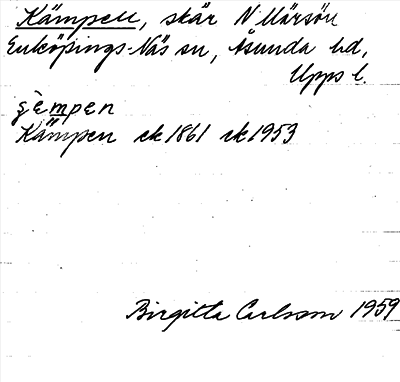 Kämpen, skär N Märsön
Enköpings-Näs sn, Åsunda hd,
Upps l.
çèmpen
Kämpen ek 1861 ek 1953
Birgitta Carlsson 1959